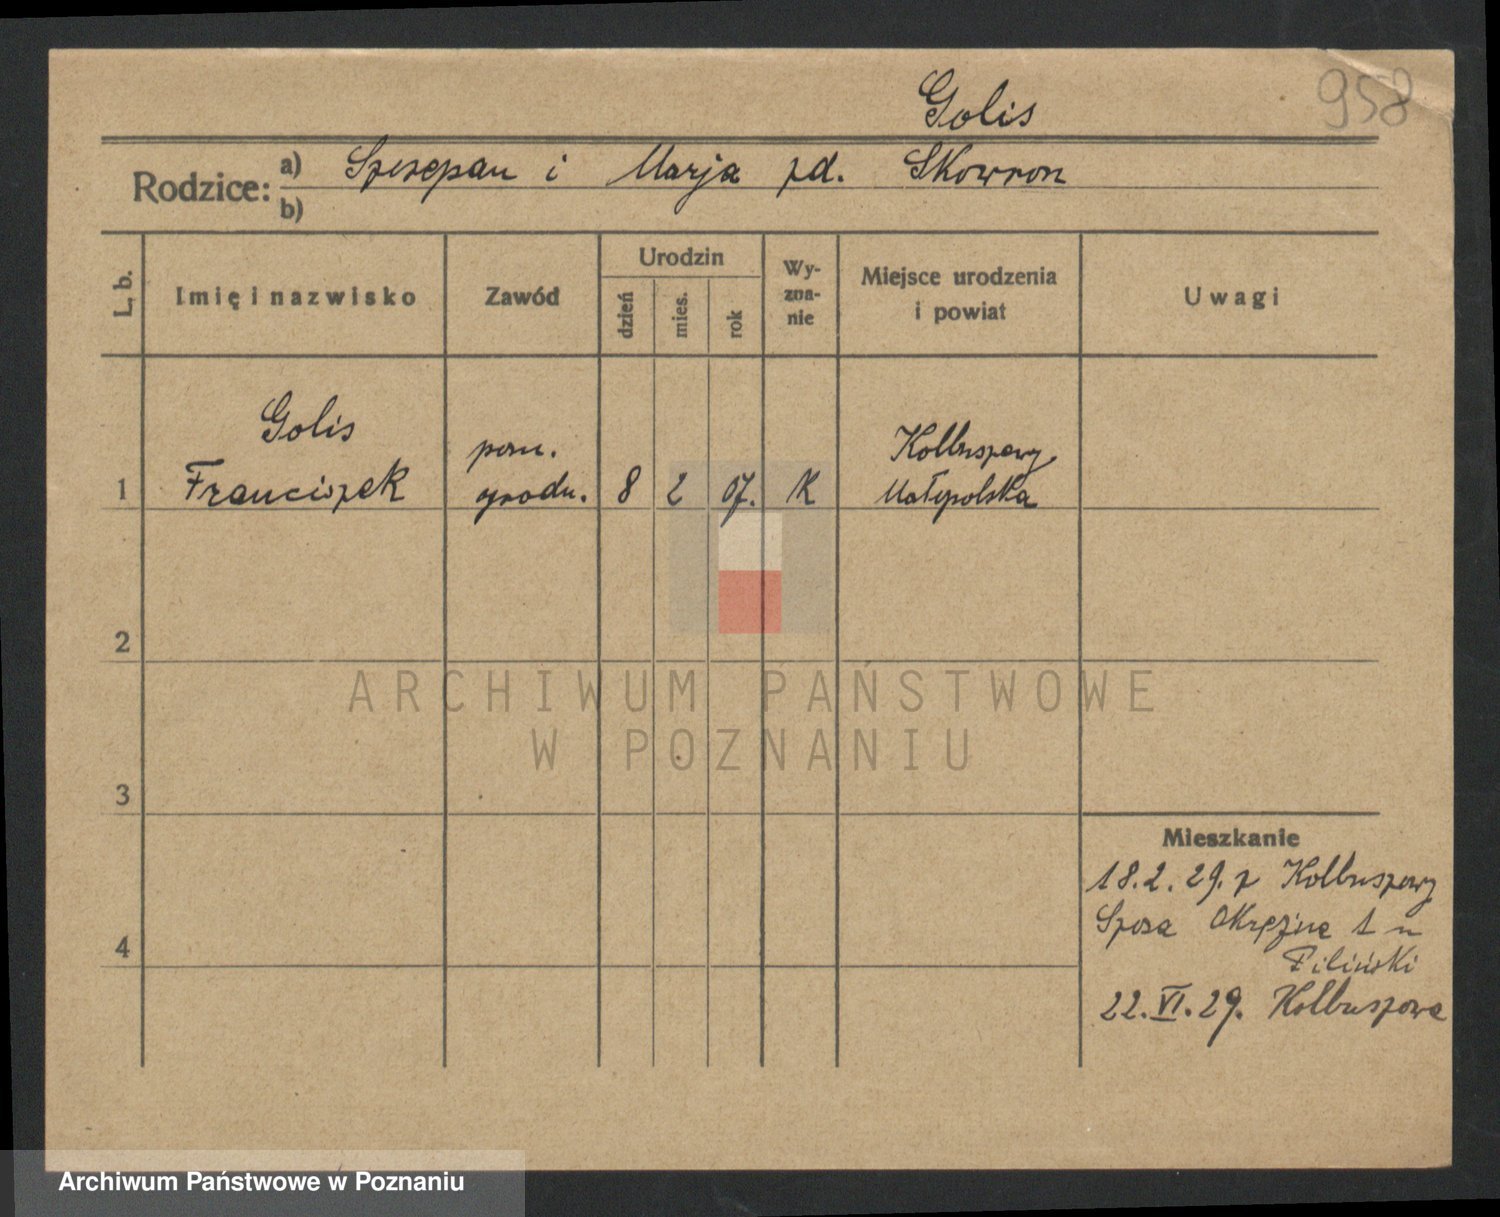 Golis
958
Rodzice: a) Szczepan i Marja zd. Skowron
b)
L. b.
Imię i nazwisko
Zawód
Urodzin
dzień
mies.
rok
Wy-
zna-
nie
Miejsce urodzenia
i powiat
Uwagi
Golis
pom.
Kolbuszowy
1 Franciszek ogrodn. 8 2 07. K Małopolska
2
ARCHIWUM PAŃSTWOWE
W POZNANIU
3
Mieszkanie
18.2.29. z Kolbuszowy
Okrężna 1
4
Filiński
22.VI.29. Kolbuszowa
Archiwum Państwowe w Poznaniu